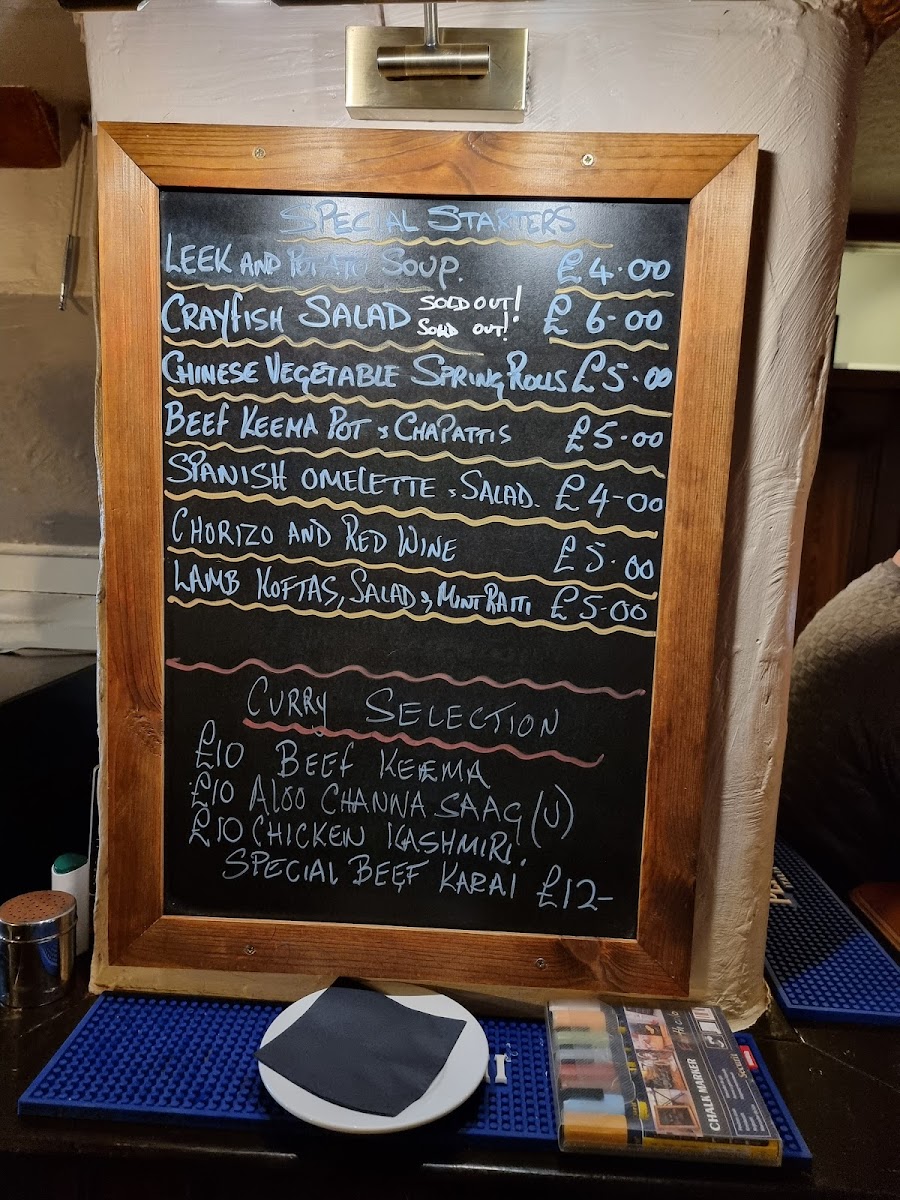 SPECIAL STARTERS
LEEK AND POTATO SOUP. £4.00
CRAYFISH SALAD SOLD OUT! £6-00
SOLD OUT!
CHINESE VEGETABLE SPRING ROLLS £5.00
BEEF KEEMA POT & CHAPATTIS £5.00
SPANISH OMELETTE & SALAD. £4-00
CHORIZO AND RED WINE £5.00
LAMB KOFTAS, SALAD & MINT RAITI £5.00
CURRY SELECTION
£10 BEEF KEEMA
£10 ALOO CHANNA SAAG (V)
£10 CHICKEN KASHMIRI.
SPECIAL BEEF KARAI £12-
CHALK MARKER